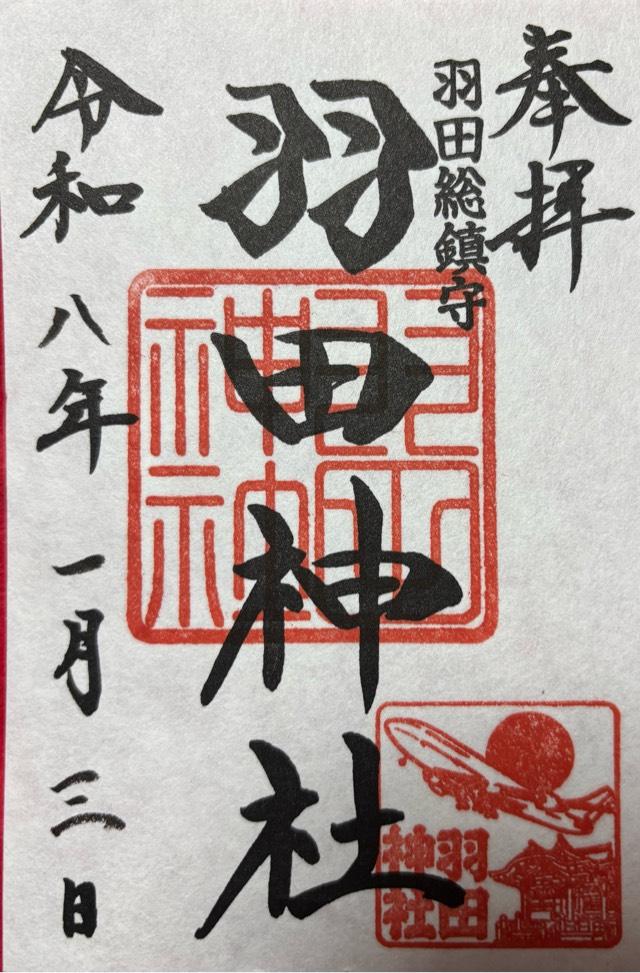 奉拝
羽田総鎮守
羽田神社
令和八年一月三日
羽田
神社
羽田
神社